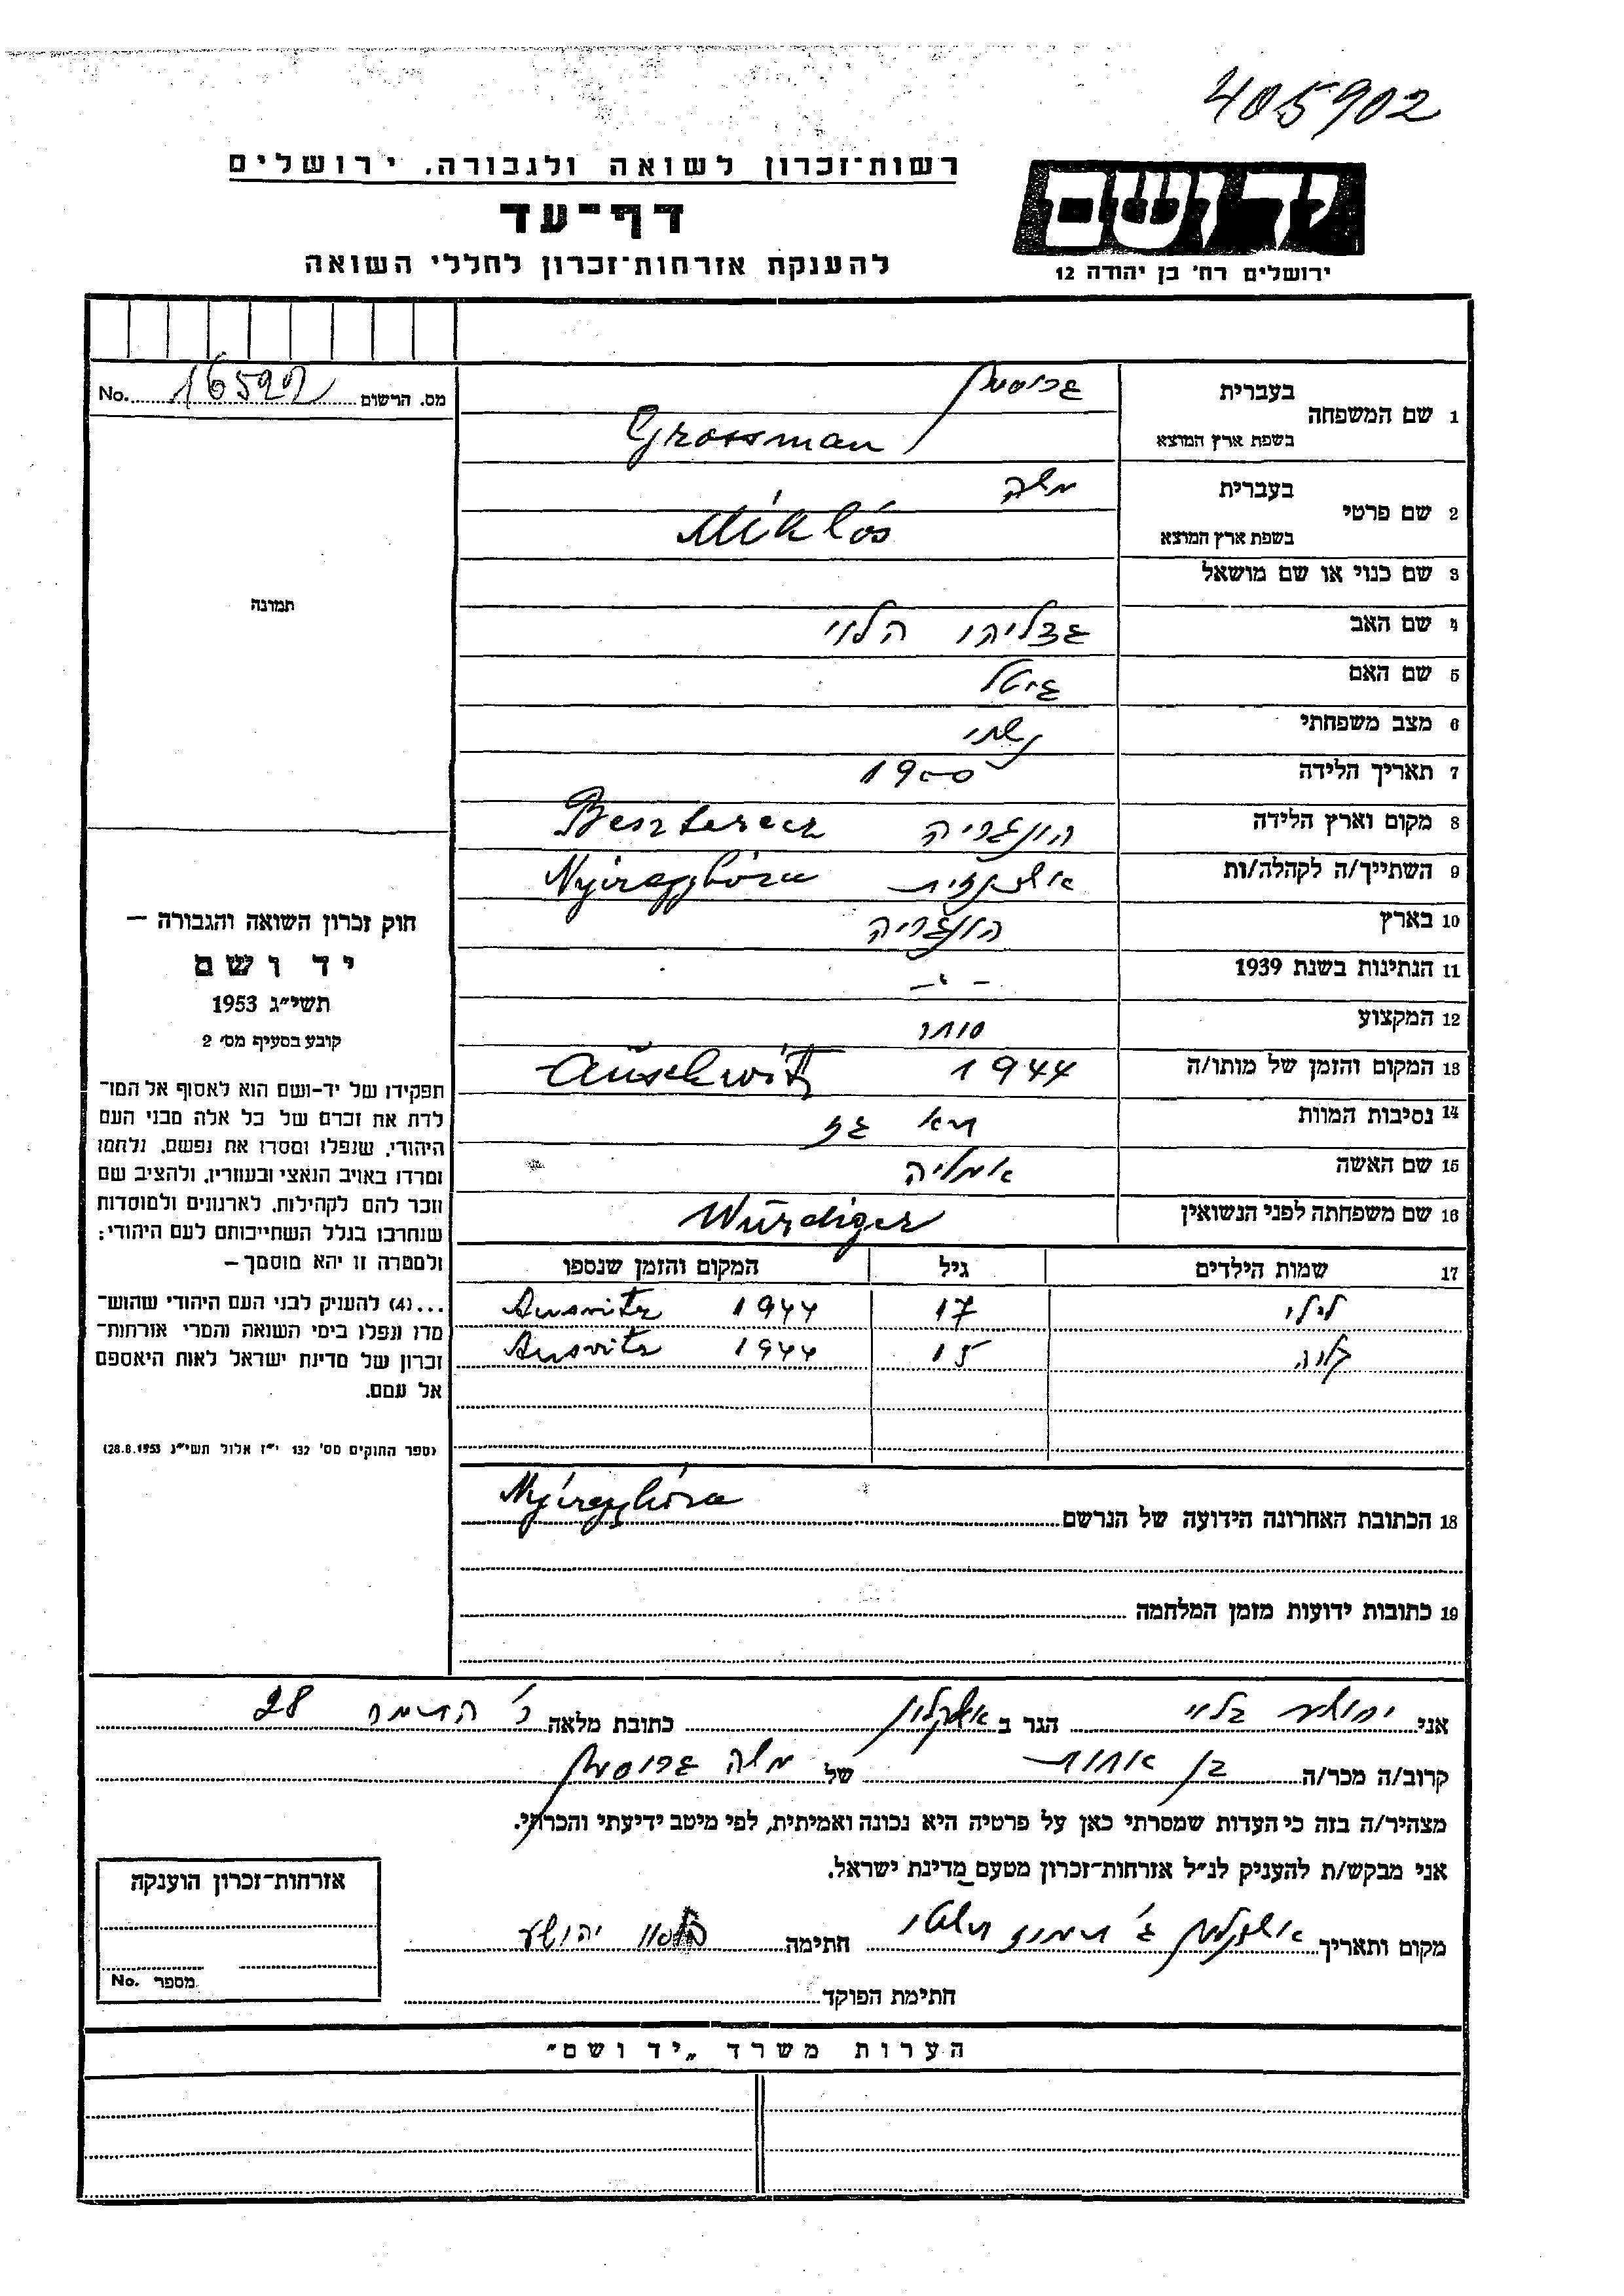 405902
רשות־זכרון לשואה ולגבורה, ירושלים
דף־עד
להענקת אזרחות־זכרון לחללי השואה
יד ושם
ירושלים רח' בן יהודה 12
מס. הרשום 16592 No.
1 שם המשפחה
בעברית גרוסמן
בשפת ארץ המוצא Grossman
2 שם פרטי
בעברית משה
בשפת ארץ המוצא Miklós
3 שם כנוי או שם מושאל
4 שם האב גדליהו הלוי
5 שם האם גיטל
6 מצב משפחתי נשוי
7 תאריך הלידה 1900
8 מקום וארץ הלידה הונגריה Beszterecz
9 השתייך/ה לקהלה/ות אשכנזית Nyíregyháza
10 בארץ הונגריה
11 הנתינות בשנת 1939 - " -
12 המקצוע סוחר
13 המקום והזמן של מותו/ה 1944 Auschwitz
14 נסיבות המוות תא גז
15 שם האשה אמליה
16 שם משפחתה לפני הנשואין Würdiger
17 שמות הילדים גיל המקום והזמן שנספו
לילי 17 1944 Ausvitz
15 1944 Ausvitz
18 הכתובת האחרונה הידועה של הנרשם Nyíregyháza
19 כתובות ידועות מזמן המלחמה
תמונה
חוק זכרון השואה והגבורה —
יד ושם
תשי״ג 1953
קובע בסעיף מס׳ 2
תפקידו של יד־ושם הוא לאסוף אל המו־
לדת את זכרם של כל אלה מבני העם
היהודי, שנפלו ומסרו את נפשם, נלחמו
ומרדו באויב הנאצי ובעוזריו, ולהציב שם
וזכר להם לקהילות, לארגונים ולמוסדות
שנחרבו בגלל השתייכותם לעם היהודי;
ולמטרה זו יהא מוסמך —
...(4) להעניק לבני העם היהודי שהוש־
מדו ונפלו בימי השואה והמרי אזרחות־
זכרון של מדינת ישראל לאות היאספם
אל עמם.
(ספר החוקים מס׳ 132 י״ז אלול תשי״ג 28.8.1953)
אני יהושע הגר ב אשקלון כתובת מלאה 28
קרוב/ה מכר/ה בן אחות של משה גרוסמן
מצהיר/ה בזה כי העדות שמסרתי כאן על פרטיה היא נכונה ואמיתית, לפי מיטב ידיעתי והכרתי.
אני מבקש/ת להעניק לנ״ל אזרחות־זכרון מטעם מדינת ישראל.
מקום ותאריך אשקלון חתימה יהושע
חתימת הפוקד
אזרחות־זכרון הוענקה
מספר No.
הערות משרד „יד ושם״